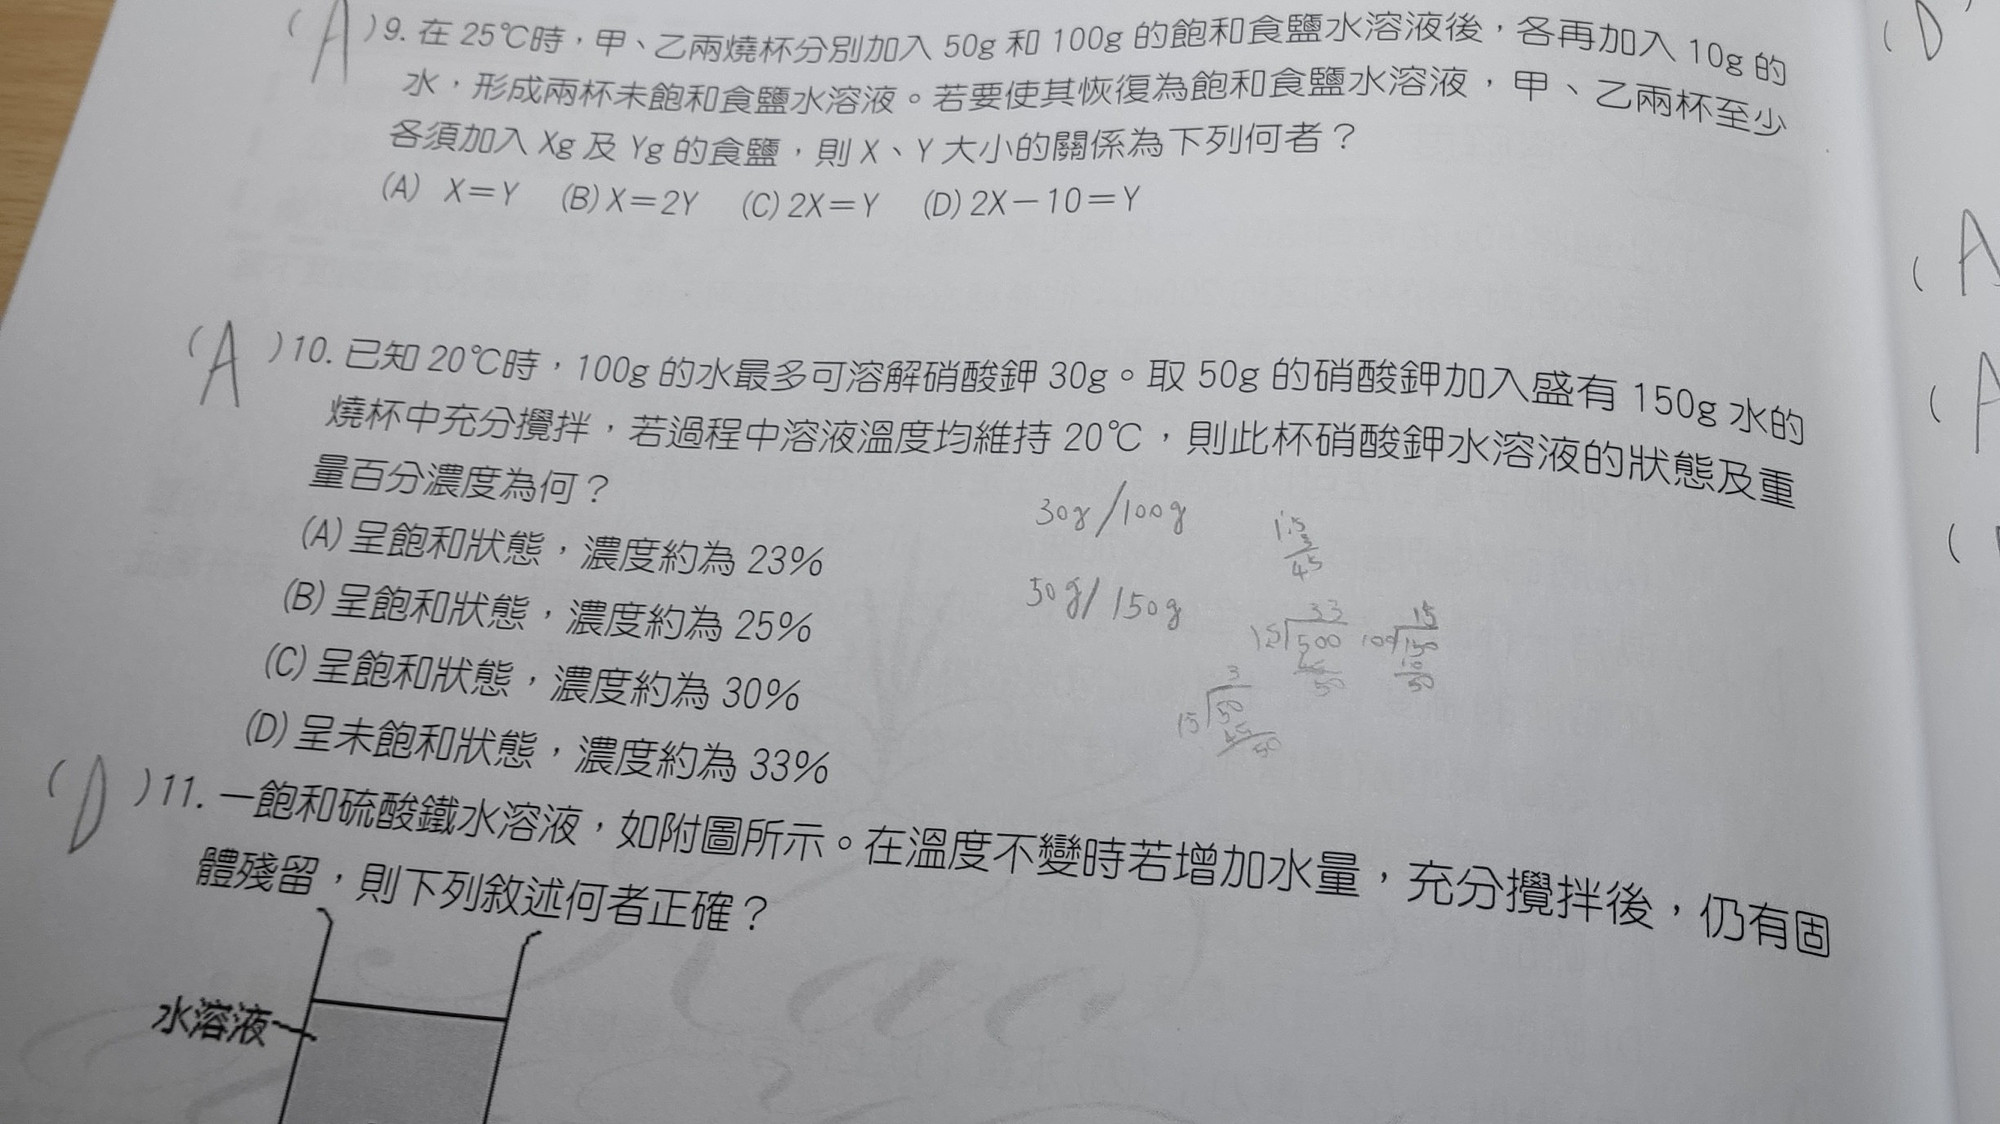 (A)9. 在 25℃時，甲、乙兩燒杯分別加入 50g 和 100g 的飽和食鹽水溶液後，各再加入 10g 的
水，形成兩杯未飽和食鹽水溶液。若要使其恢復為飽和食鹽水溶液，甲、乙兩杯至少
各須加入 Xg 及 Yg 的食鹽，則 X、Y 大小的關係為下列何者？
(A) X＝Y (B) X＝2Y (C) 2X＝Y (D) 2X－10＝Y
(A)10. 已知 20℃時，100g 的水最多可溶解硝酸鉀 30g。取 50g 的硝酸鉀加入盛有 150g 水的
燒杯中充分攪拌，若過程中溶液溫度均維持 20℃，則此杯硝酸鉀水溶液的狀態及重
量百分濃度為何？
(A) 呈飽和狀態，濃度約為 23%
(B) 呈飽和狀態，濃度約為 25%
(C) 呈飽和狀態，濃度約為 30%
(D) 呈未飽和狀態，濃度約為 33%
30g/100g
50g/150g
1.5
3
45
33
15 500
45
50
15
100 150
10
50
3
15 50
45
50
(D)11. 一飽和硫酸鐵水溶液，如附圖所示。在溫度不變時若增加水量，充分攪拌後，仍有固
體殘留，則下列敘述何者正確？
水溶液
(D
(A
(A
(